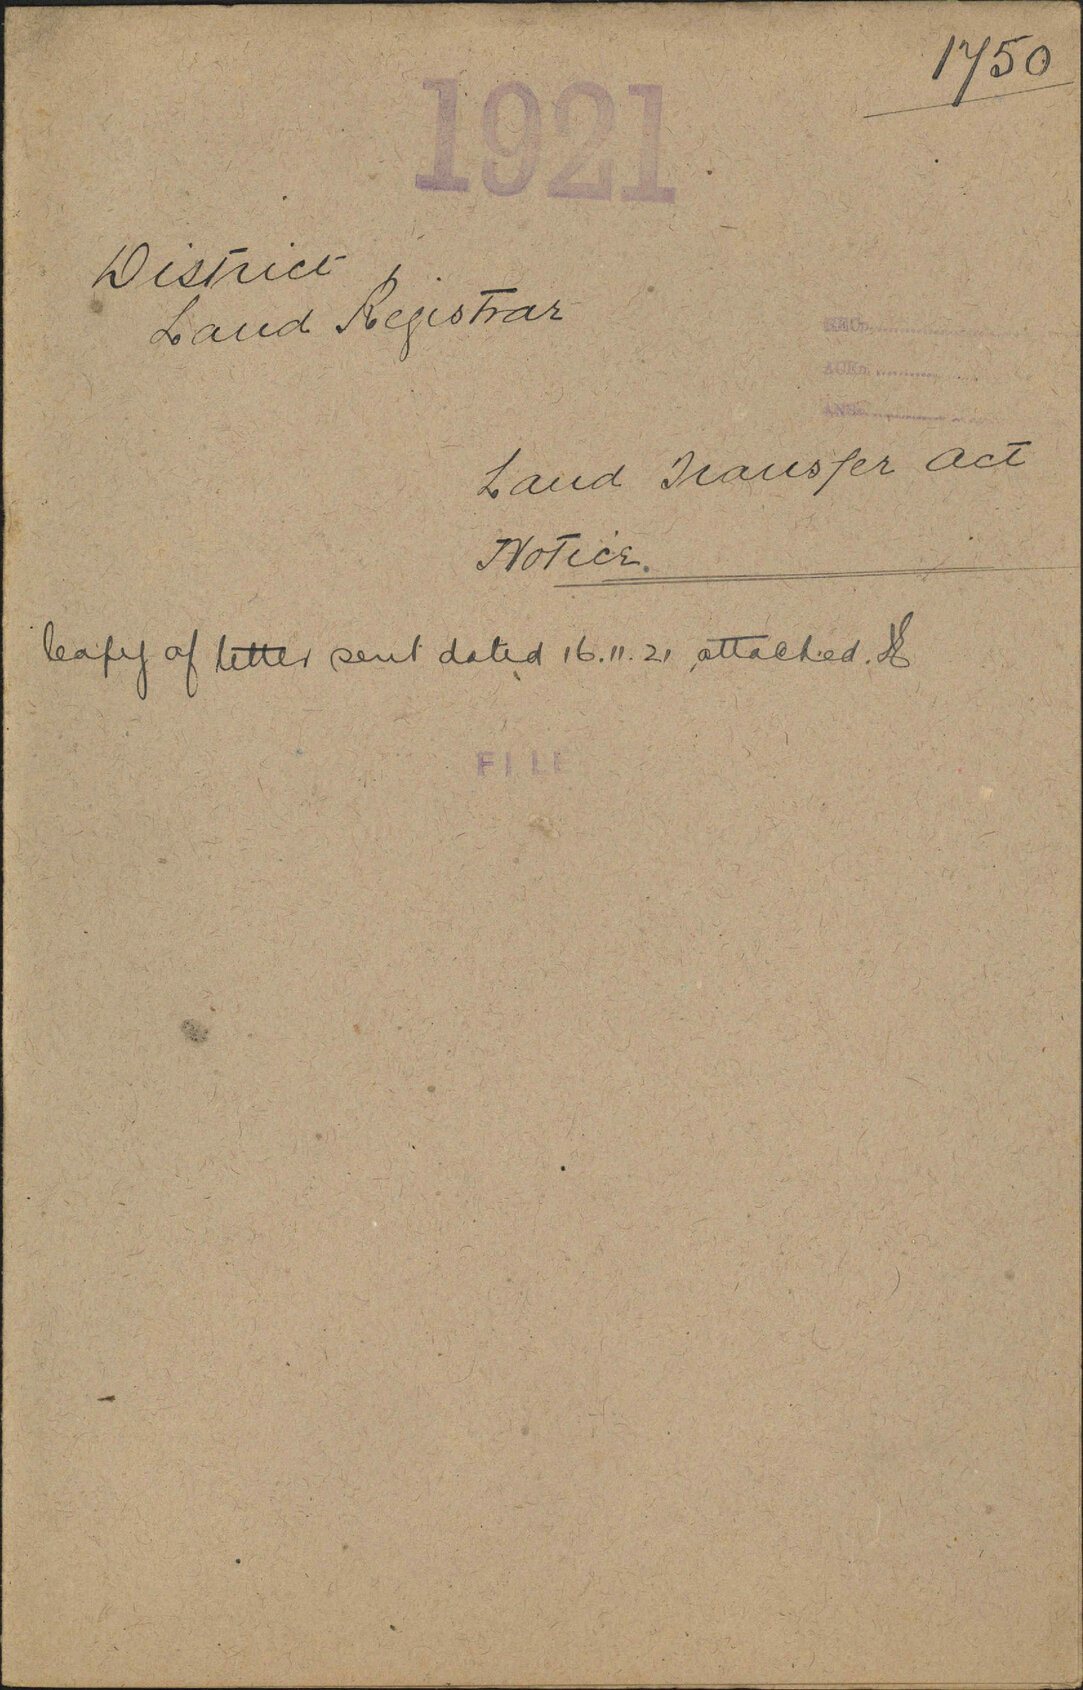 1750
1921
District
Land Registrar
REC'D.
ACK'D.
ANS'D.
Land Transfer Act
Notice.
Copy of letter sent dated 16.11.21 attached.
FILE